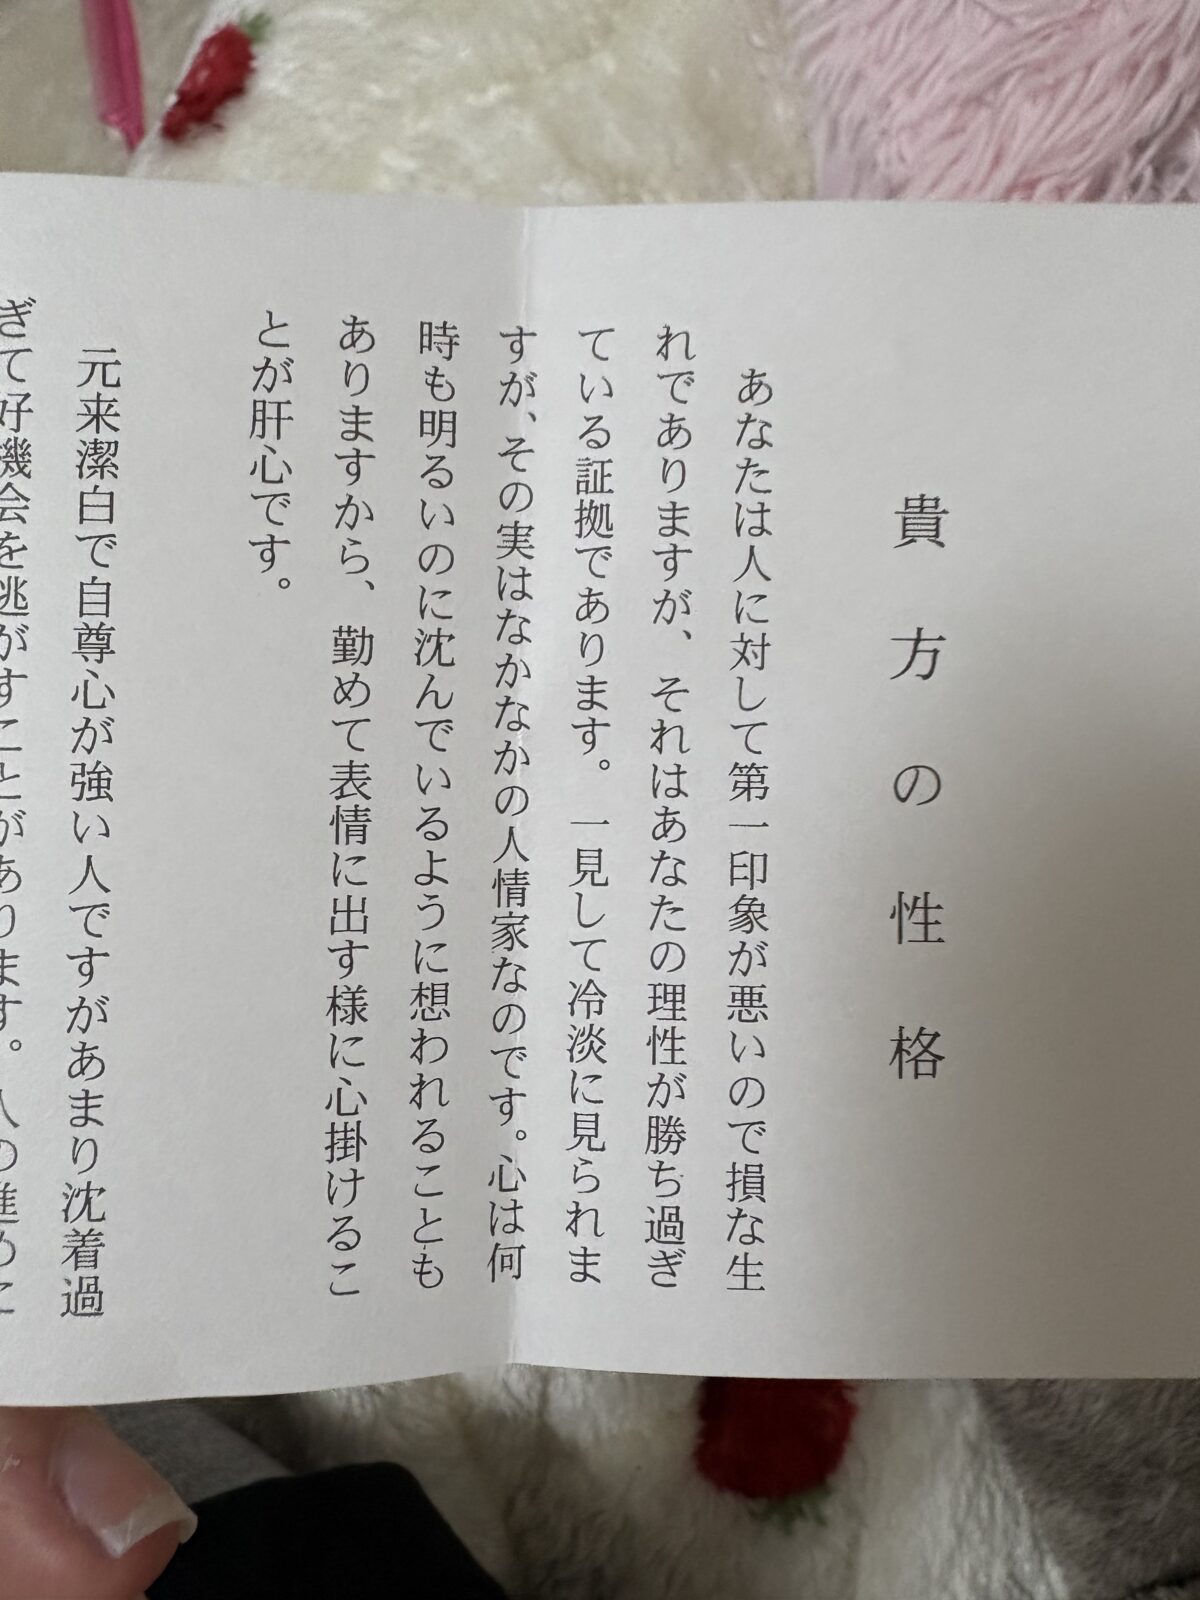 貴方の性格
あなたは人に対して第一印象が悪いので損な生
れでありますが、それはあなたの理性が勝ち過ぎ
ている証拠であります。一見して冷淡に見られま
すが、その実はなかなかの人情家なのです。心は何
時も明るいのに沈んでいるように想われることも
ありますから、勤めて表情に出す様に心掛けるこ
とが肝心です。
元来潔白で自尊心が強い人ですがあまり沈着過
ぎて好機会を逃がすことがあります。人の進めに